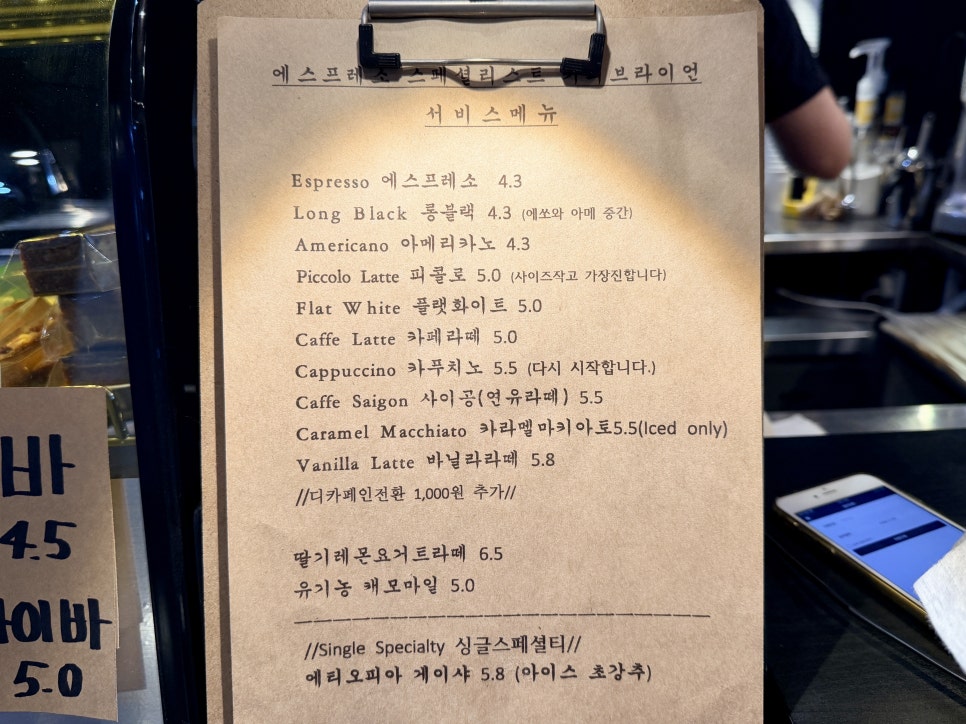 에스프레소 스페셜리스트 브라이언
서비스메뉴
Espresso 에스프레소 4.3
Long Black 롱블랙 4.3 (에쏘와 아메 중간)
Americano 아메리카노 4.3
Piccolo Latte 피콜로 5.0 (사이즈작고 가장진합니다)
Flat White 플랫화이트 5.0
Caffe Latte 카페라떼 5.0
Cappuccino 카푸치노 5.5 (다시 시작합니다.)
Caffe Saigon 사이공(연유라떼) 5.5
Caramel Macchiato 카라멜마키아토5.5(Iced only)
Vanilla Latte 바닐라라떼 5.8
//디카페인전환 1,000원 추가//
딸기레몬요거트라떼 6.5
유기농 캐모마일 5.0
//Single Specialty 싱글스페셜티//
에티오피아 게이샤 5.8 (아이스 초강추)
바
4.5
이바
5.0